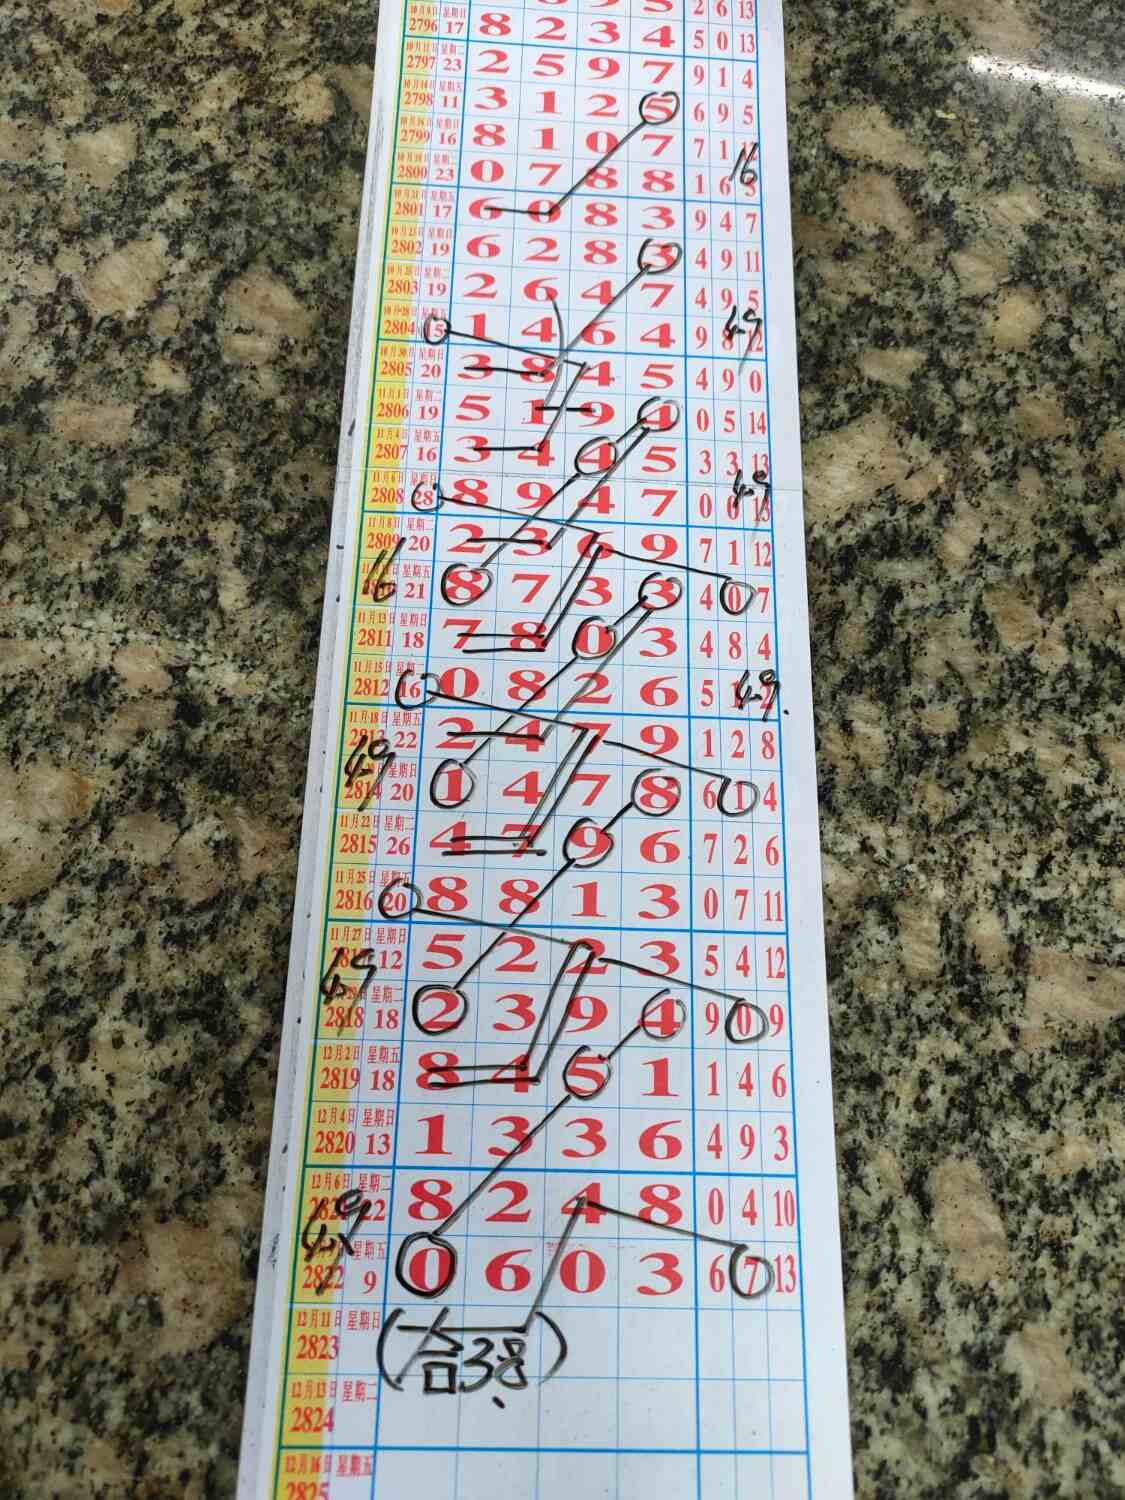 2 6 13
10月9日 星期日 2796 17 8 2 3 4 5 0 13
10月11日 星期二 2797 23 2 5 9 7 9 1 4
10月14日 星期五 2798 11 3 1 2 5 6 9 5
10月16日 星期日 2799 16 8 1 0 7 7 1 12
10月18日 星期二 2800 23 0 7 8 8 1 6 5
16
10月21日 星期五 2801 17 6 0 8 3 9 4 7
10月23日 星期日 2802 19 6 2 8 3 4 9 11
10月25日 星期二 2803 19 2 6 4 7 4 9 5
10月28日 星期五 2804 15 1 4 6 4 9 8 12
49
10月30日 星期日 2805 20 3 8 4 5 4 9 0
11月1日 星期二 2806 19 5 1 9 4 0 5 14
11月4日 星期五 2807 16 3 4 4 5 3 3 13
11月6日 星期日 2808 28 8 9 4 7 0 0 13
49
11月8日 星期二 2809 20 2 3 6 9 7 1 12
星期五 21 8 7 3 3 4 0 7
16
11月13日 星期日 2811 18 7 8 0 3 4 8 4
11月15日 星期二 2812 16 0 8 2 6 5 1 2
49.
11月18日 星期五 2813 22 2 4 7 9 1 2 8
星期日 2814 20 1 4 7 8 6 1 4
49
11月22日 星期二 2815 26 4 7 9 6 7 2 6
11月25日 星期五 2816 20 8 8 1 3 0 7 11
11月27日 星期日 12 5 2 2 3 5 4 12
49
星期二 2818 18 2 3 9 4 9 0 9
12月2日 星期五 2819 18 8 4 5 1 1 4 6
12月4日 星期日 2820 13 1 3 3 6 4 9 3
12月6日 星期二 22 8 2 4 8 0 4 10
49
星期五 2822 9 0 6 0 3 6 7 13
12月11日 星期日 2823
(合38.)
12月13日 星期二 2824
12月16日 星期五 2825